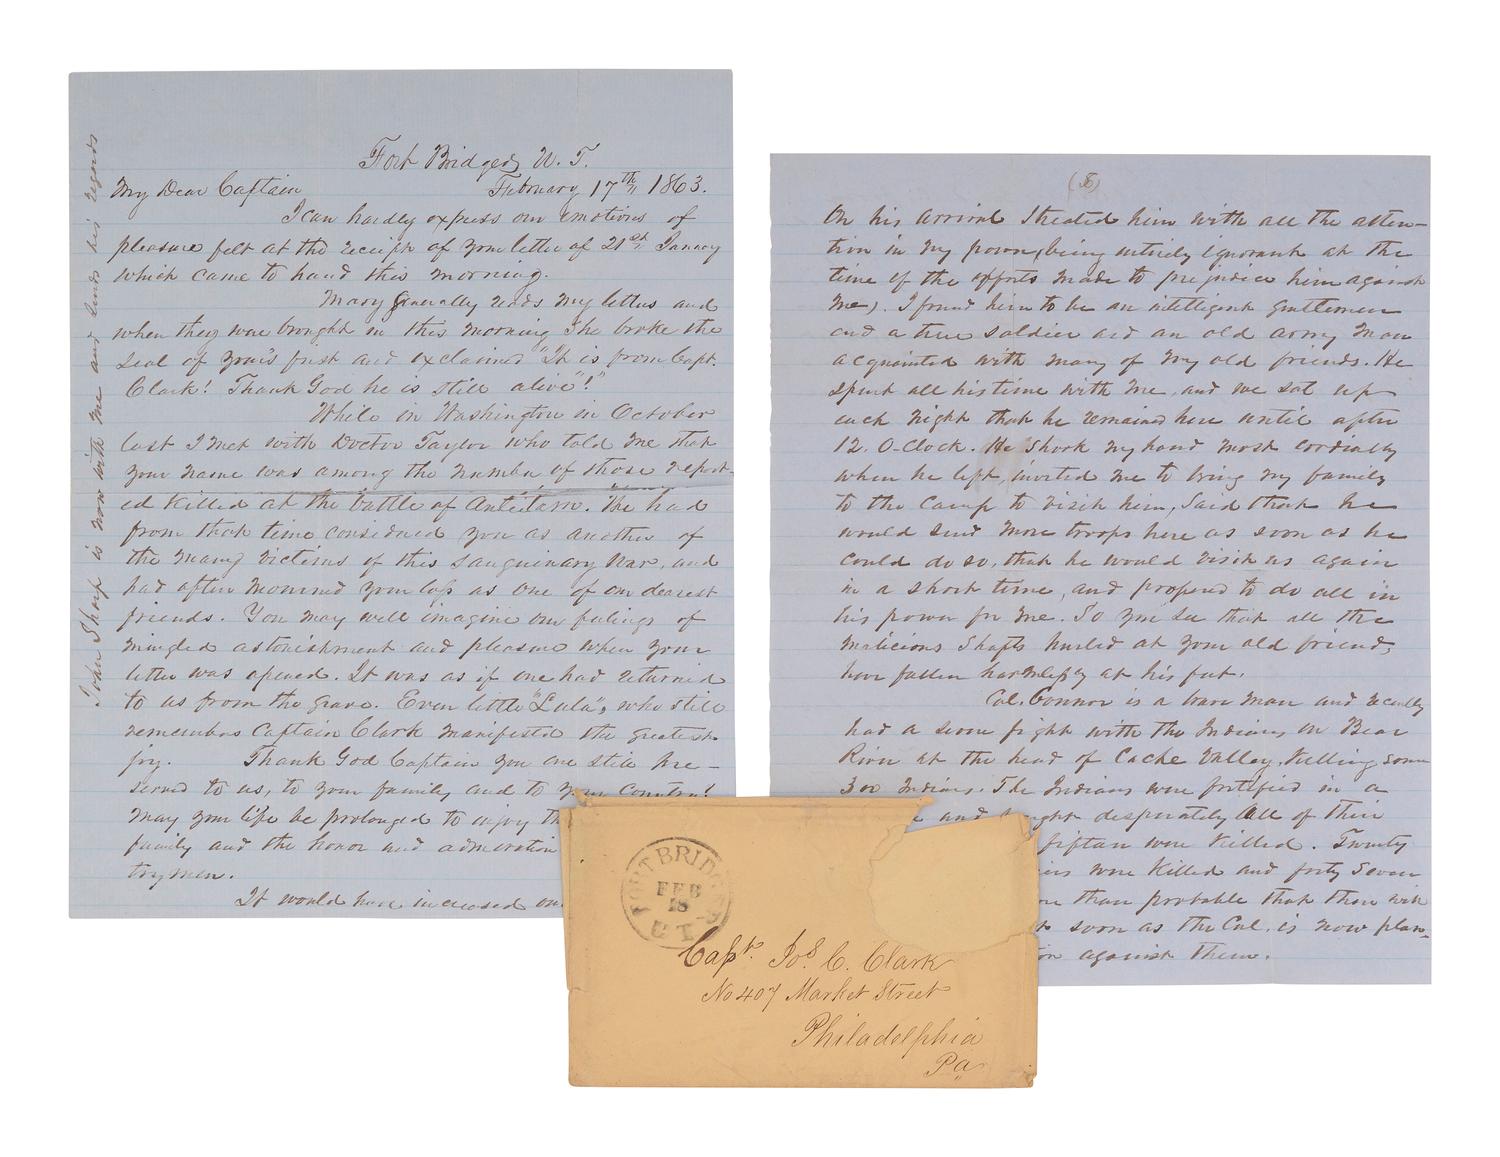 Fort Bridger, U. T.
February 17th, 1863.
My Dear Captain
I can hardly express our emotions of
pleasure felt at the receipt of your letter of 21st January
which came to hand this morning.
Mary generally reads my letters and
when they were brought in this morning she broke the
seal of your's first and exclaimed "It is from Capt.
Clark! Thank God he is still alive"!"
While in Washington in October
last I met with Doctor Taylor who told me that
your name was among the number of those report-
ed killed at the battle of Antietam. We had
from that time considered you as another of
the many victims of this sanguinary war, and
had often mourned your loss as one of our dearest
friends. You may well imagine our feelings of
mingled astonishment and pleasure when your
letter was opened. It was as if one had returned
to us from the grave. Even little "Lula", who still
remembers Captain Clark manifested the greatest
joy. Thank God Captain you are still pre-
served to us, to your family and to your Country!
May your life be prolonged to enjoy
family and the honor and admiration
trymen.
It would have increased
John Sharp is now with me and sends his regards
On his arrival I treated him with all the atten-
tion in my power, (being entirely ignorant at the
time of the efforts made to prejudice him against
me). I found him to be an intelligent gentleman
and a true soldier and an old army man
acquainted with many of my old friends. He
spent all his time with me, and we sat up
each night that he remained here until after
12. O-Clock. He shook my hand most cordially
when he left, invited me to bring my family
to the camp to visit him, said that he
would send more troops here as soon as he
could do so, that he would visit us again
in a short time, and proposed to do all in
his power for me. So you see that all the
malicious shafts hurled at your old friend,
have fallen harmlessly at his feet.
Col. Connor is a brave man and recently
had a severe fight with the Indians on Bear
River at the head of Cache Valley, killing some
300 Indians. The Indians were fortified in a
and fought desperately All of their
fiftan were killed. Twenty
were killed and forty seven
than probable that there will
soon as the Col. is now plan-
against them.
FORT BRIDGER
FEB
18
U.T.
Capt. Jos. C. Clark
No 407 Market Street
Philadelphia
Pa